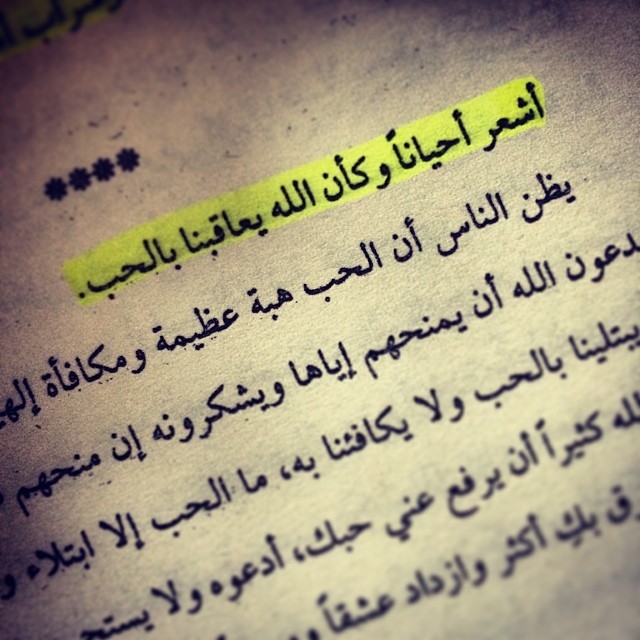 ****
أشعر أحياناً وكأن الله يعاقبنا بالحب.
يظن الناس أن الحب هبة عظيمة ومكافأة
الله أن يمنحهم إياها ويشكرونه إن منحهم
يبتلينا بالحب ولا يكافئنا به، ما الحب إلا ابتلاء
كثيراً أن يرفع عني حبك، أدعوه ولا
بكِ أكثر وازداد عشقاً